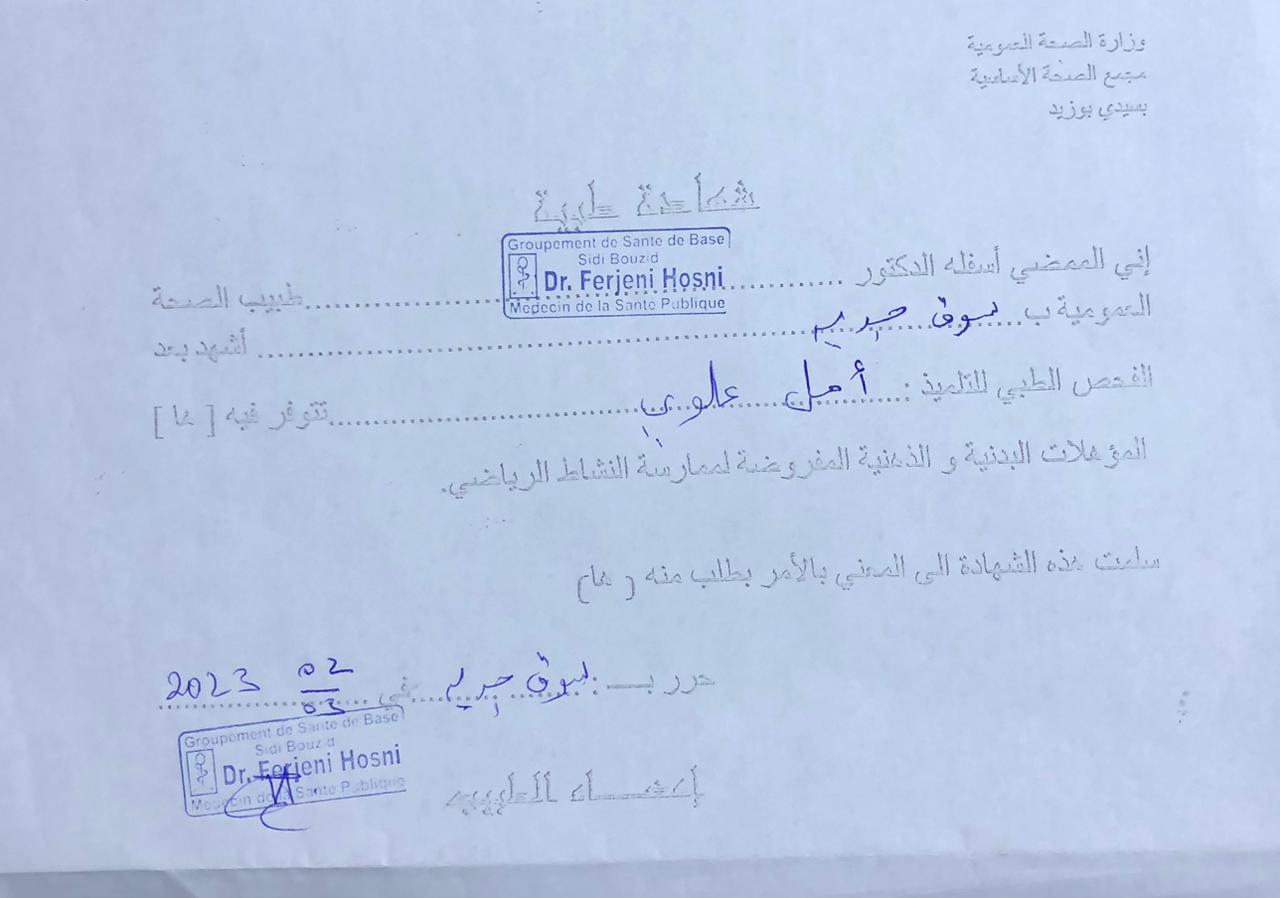 وزارة الصحة العمومية
مجمع الصحة الأساسية
بسيدي بوزيد
شهادة طبية
Groupement de Sante de Base
Sidi Bouzid
Dr. Ferjeni Hosni
Medecin de la Sante Publique
إني الممضي أسفله الدكتور ............ طبيب الصحة
العمومية ب سوق جديد ............ أشهد بعد
الفحص الطبي للتلميذ : أمل علوي ............ تتوفر فيه [ ها ]
المؤهلات البدنية و الذهنية المفروضة لممارسة النشاط الرياضي.
سلمت هذه الشهادة الى المعني بالأمر بطلب منه ( ها)
حرر بـ سوق جديد في 02/03 2023
Groupement de Sante de Base
Sidi Bouzid
Dr. Ferjeni Hosni
Medecin de la Sante Publique
إمضاء الطبيب